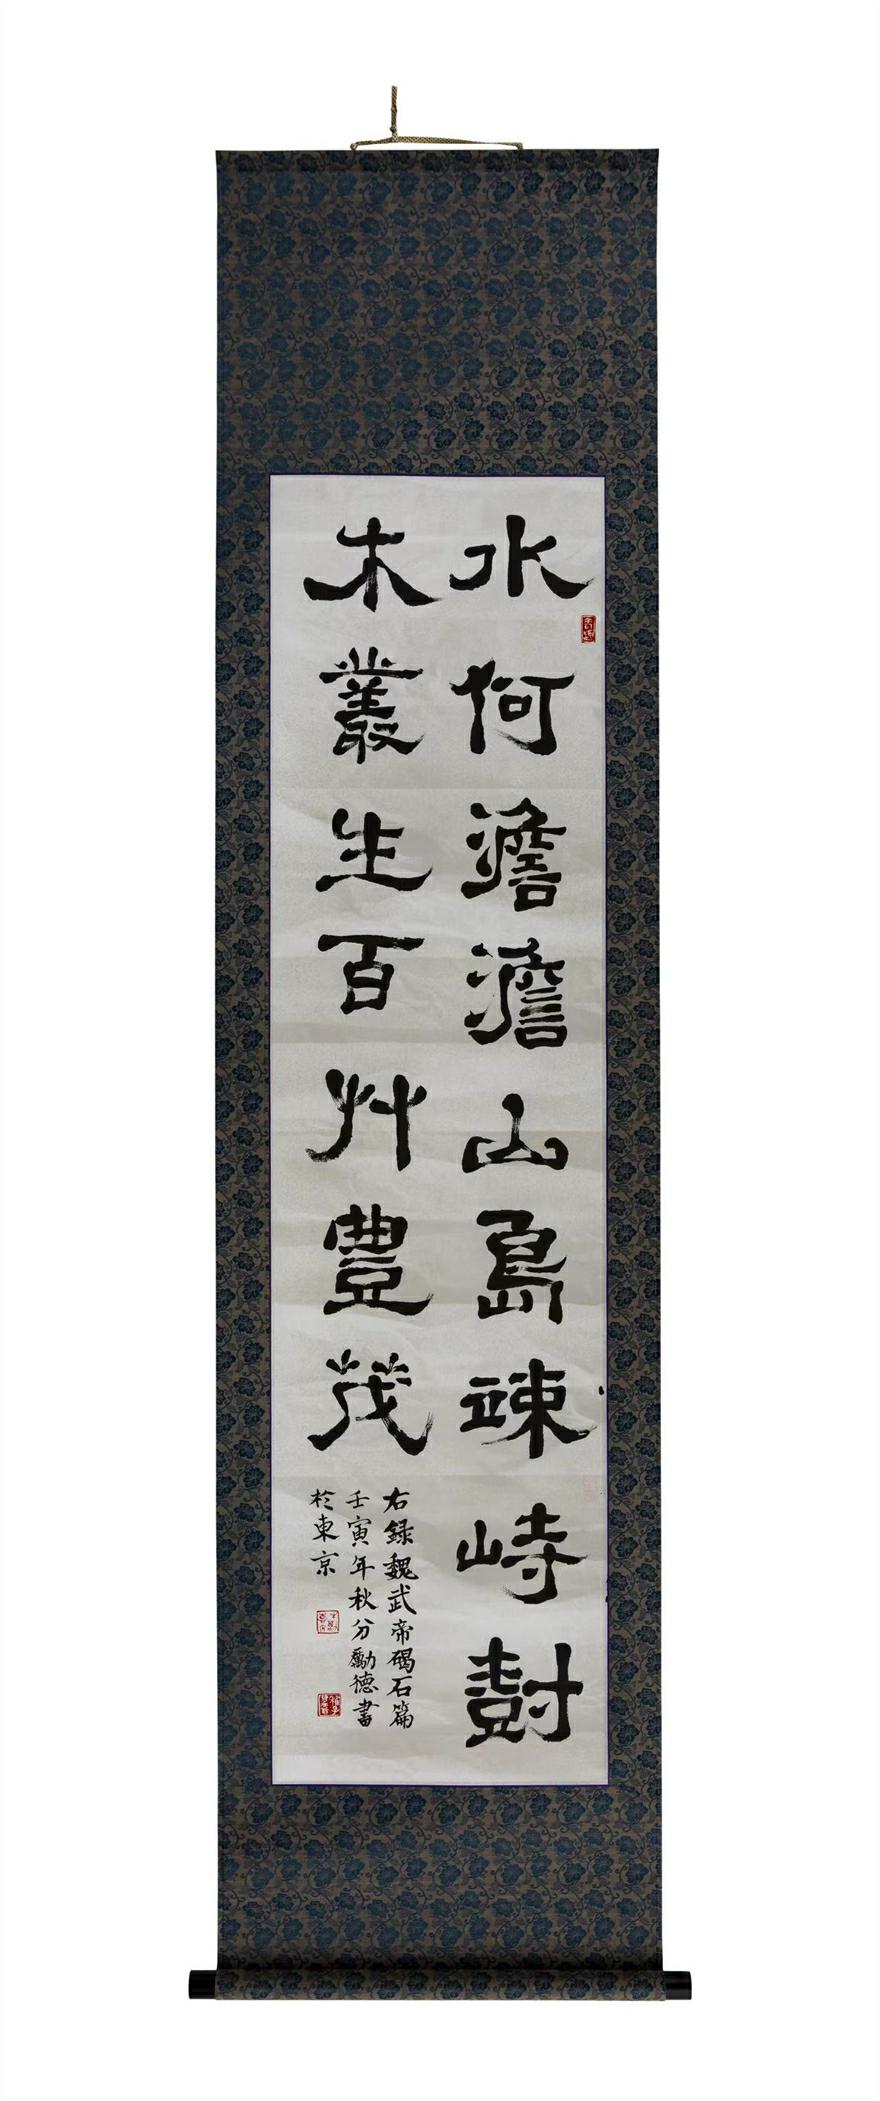 水何澹澹山島竦峙樹
木叢生百艸豐茂
右録魏武帝碣石篇
壬寅年秋分勵德書
於東京